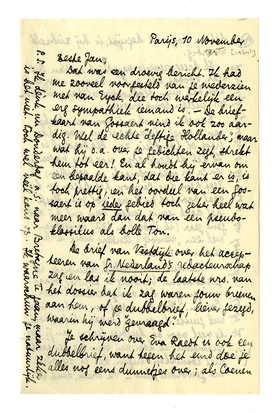 Parijs, 10 November
Beste Jan,
Dat was een droevig bericht. Ik had
me zooveel voorgesteld van je wederzien
met van Eyck, die toch werkelijk een
erg sympathiek iemand is. — De brief-
kaart van Gossaert vind ik ook zoo aar-
dig. Wel de echte deftige Hollander, maar
wat hij o.a. over je gedichten zegt strekt
hem tot eer! En al houdt hij ervan om
een bepaalde kant, dat die kant er is, is
toch prettig; en het oordeel van een Gos-
saert is op ieder gebied toch geheel wat
meer waard dan dat van een pseudo-
klassikus als bolle Ton.
De brief van Vestdijk over het accep-
teeren van Gr. Nederland's redacteurschap
zag en las ik nooit; de laatste nrs. van
het dossier dat ik zag waren jouw brieven
aan hem, of je dubbelbrief, liever gezegd,
waarin hij werd "gemaagd".
Je schrijven over Eva Raedt is ook een
dubbelbrief, want tegen het eind doe je
alles nog eens dunnetjes over; als Coenen
P.S. Ik denk nu Donderdag a.s. naar Bretagne te gaan, maar zeker
is het niet. Toch wel veel kans op. Ik waarschuw je natuurlijk.